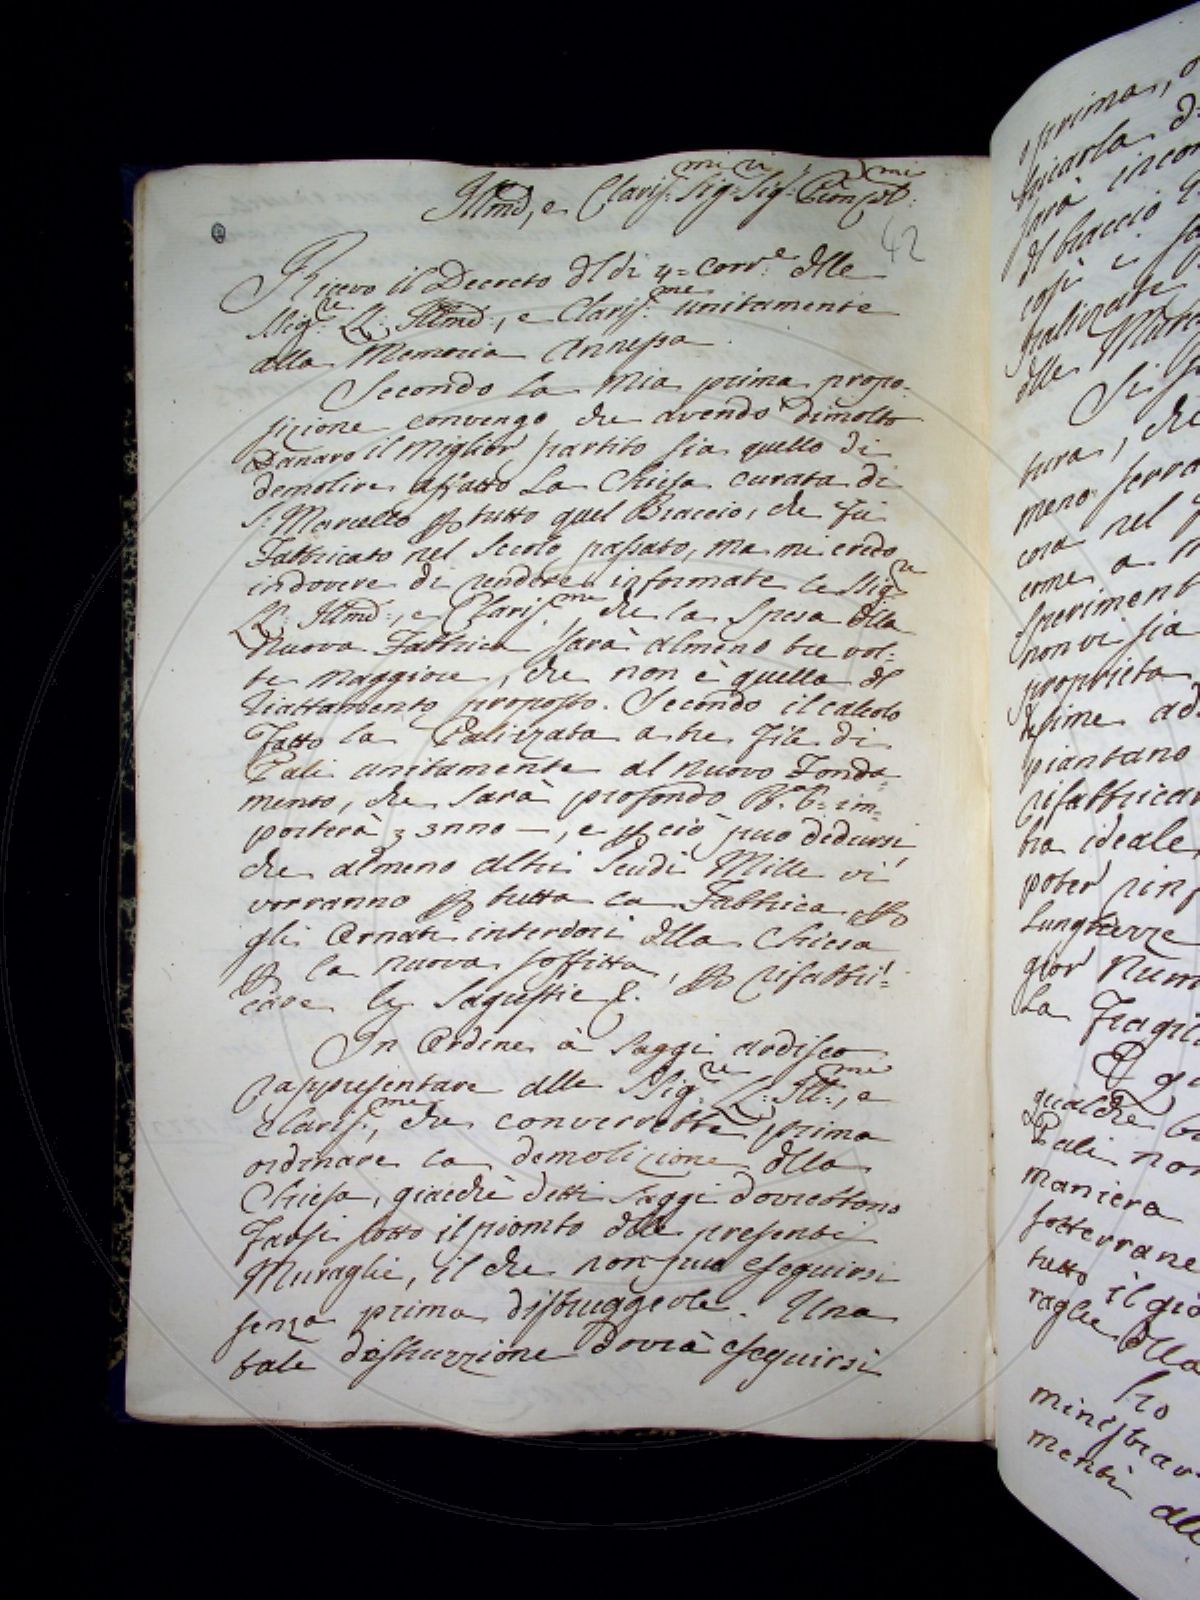 Illmi, e Clariss:mi Sig:ri Sig:ri Pron Col:mi
42
Ricevo il Decreto dl di 4= Corr.e dlle
Sig.rie LL: Illme:, e Clariss:me unitamente
alla Memoria Annessa.
Secondo la mia prima propo-
sizione convengo che avendo dimolto
Danaro il miglior partito sia quello di
demolire affatto la Chiesa curata di
S: Marcello p tutto quel Braccio, che fù
Fabbricato nel Secolo passato, ma mi credo
indovere di rendere informate le Sig.rie
LL: Illme:, e Clariss:me che la spesa dlla
nuova Fabbrica sarà almeno tre vol:
te maggiore, che non è quella dl
riattamento proposto. Secondo il calcolo
fatto la Palizzata a tre file di
Pali unitamente al nuovo Fonda=
mento, che sarà profondo B.a 6= im=
porterà 3 3nno —, e p ciò può dedursi,
che almeno altri Scudi Mille vi
vorranno p tutta la Fabbrica p
gli Ornati interiori dlla Chiesa
p la nuova soffitta, p rifabbri=
care le Sagrestie &.
In Ordine à saggi ardisco
rappresentare alle Sig.rie LL: Ill:me, e
Clariss:me, che converrebbe prima
ordinare la demolizione dlla
Chiesa, giacchè detti saggi dovrebbono
farsi sotto il piombo dlle presenti
Muraglie, il che non può eseguirsi
senza prima distruggerle. Una
tale distruzzione dovrà eseguirsi
o prima,
ficarla
sarà
dl braccio
così
palizate
dlle
Si
tura, che
meno
cora nel
come a
sperimento
non vi sia
proprieta
desime ad
piantano
rifabbricar
tra ideale
poter
lunghezze
gior num
la fragil
E
qualche
Pali non
maniera
sotterrane
tutto il
raglie dlla
ho
ministrar
menti
dll